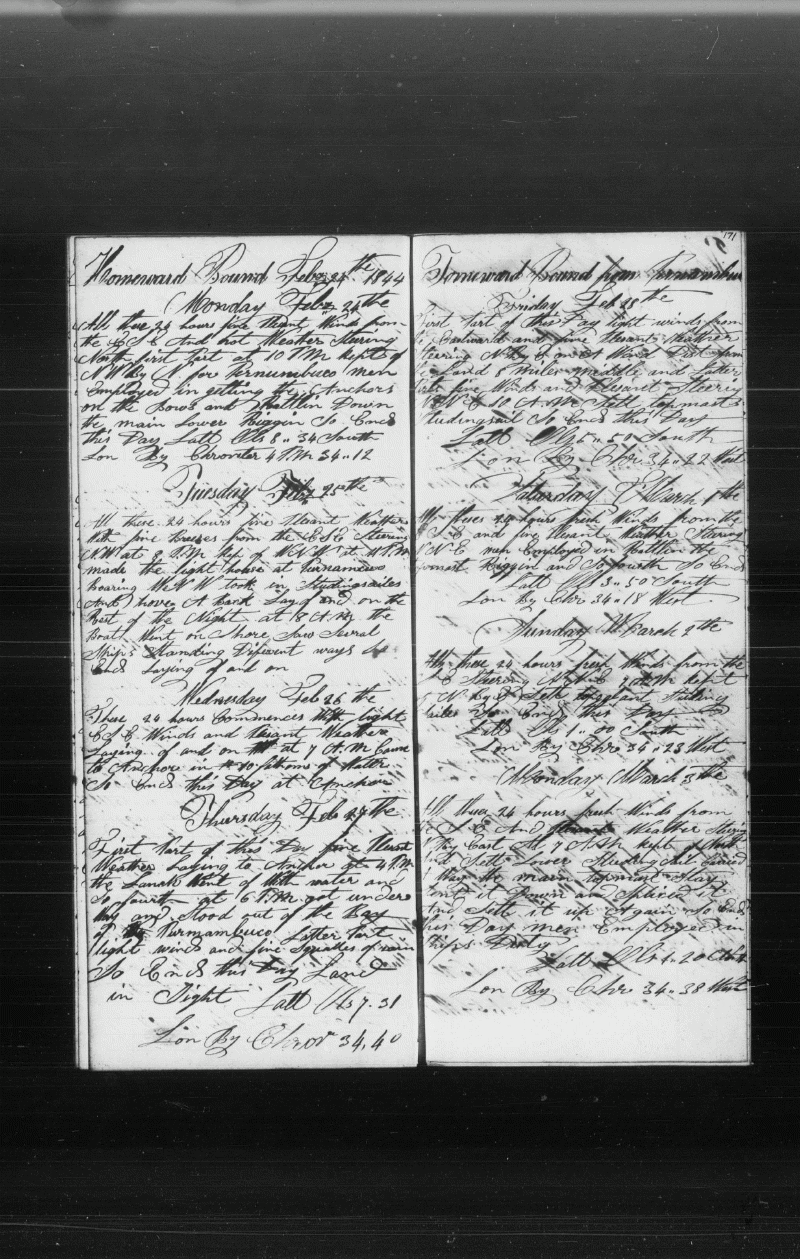 Homeward Bound Feb 24th 1844
Monday Feb 24 the
All these 24 hours fine Plesant Winds from
the E S E And hot Weather Stering
North first part at 10 P M kept of
N W By N for Pernumbuco men
Employed in getting the Anchors
on the Bows and Rattlin Down
the main Lower Riggen So Ends
this Day Latt Obs 8 .. 34 South
Lon By Chromter 4 P M 34 .. 12
Tuesday Feb 25 the
All these 24 hours fine Plesant Weather
With fine Breeses from the E S E Stering
N.W at 8 P.M kep of W N W at 4 A M
made the light house at Purnambuco
Bearing W N W took in Studingsailes
And hove A back Layd of and on the
Rest of the Night at 8 A.M the
Boat Went on Shore Saw Sevral
Ships Standing Diferent ways So
Ends Laying of and on
Wednesday Feb 26 the
These 24 hours Commences With light
E S E Winds and Plesant Weather
Laying of and on at 7 A.M Came
to Anchor in 10 fathoms of Watter
So Ends this Day at Anchor
Thursday Feb 27 the
First Part of this Day fine Plesant
Weather Laying to Anchor at 4 P.M
the Lanch Went of With water and
So fourth at 6 P.M got under
way and Stood out of the Bay
of Purnambuco Latter Part
light winds and fine Squalles of rain
So Ends this Day Land
in Sight Latt Obs 7 .. 31
Lon By Chror 34,40
171
Homeward Bound from Pernambuco
Friday Feb 28 the
First Part of this Day light winds from
Eastward and fine Plesant Weather
Steering N By E Point Wood Dist from
Land 8 Miles middle and Latter
Parts fine Winds and Plesant Steering
N B E 10 A.M Sett topmast
Studingsail So Ends this Day
Latt Obs 5 .. 50 South
Lon By Chr 34 .. 22 West
Saturday March 1 the
All these 24 hours fresh Winds from the
S E and fine Plesant Weather Stering
N E men Employed in Rattlin the
Riggen and So fourth So Ends
Latt Obs 3 .. 50 South
Lon By Chr 34 .. 18 West
Sunday March 2 the
All these 24 hours fresh Winds from the
S E Steering N B E 7 A M kept
N By E Sett Studing
sailes So Ends this Day
Latt Obs 1 .. 00 South
Lon By Chro 34 .. 23 West
Monday March 3 the
All these 24 hours fresh Winds from
the S E And Weather Stering
N By East At 7 A.M kept of North
and Sett Lower Studing Sail
away the main topmast Stay
Sent it Down and Spliced it
and Sett it up Again So Ends
this Day men Employed in
Ships Duty
Latt Obs 1 .. 20
Lon By Chr 34 .. 38 West